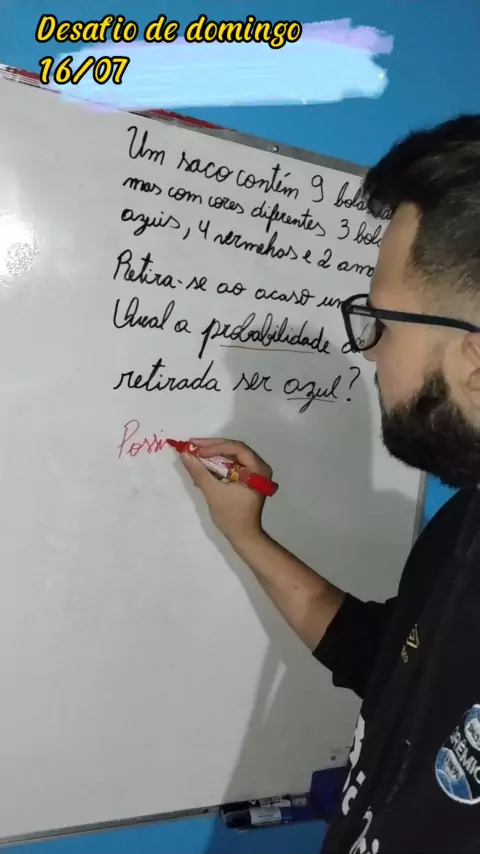 Desafio de domingo
16/07
Um saco contém 9
mas com cores diferentes 3
azuis, 4 vermehas e 2
Retira-se ao acaso
Qual a probabilidade
retirada ser azul?
GRÊMIO